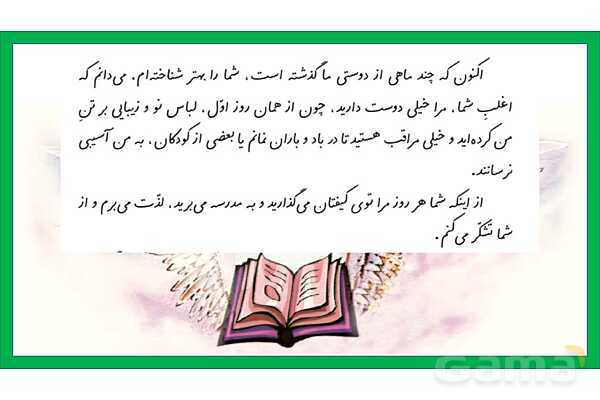 اکنون که چند ماهی از دوستی ما گذشته است، شما را بهتر شناخته‌ام. می‌دانم که
اغلبِ شما، مرا خیلی دوست دارید، چون از همان روز اوّل، لباس نو و زیبایی بر تنِ
من کرده‌اید و خیلی مراقب هستید تا در باد و باران نمانم یا بعضی از کودکان، به من آسیبی
نرسانند.
از اینکه شما هر روز مرا توی کیفتان می‌گذارید و به مدرسه می‌برید، لذّت می‌برم و از
شما تشکّر می‌کنم.
Gama